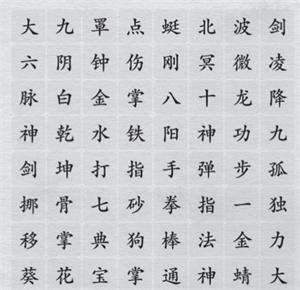 大九罩点蜓北波剑
六阴钟伤刚冥微凌
脉白金掌八十龙降
神乾水铁阳神功九
剑坤打指手弹步孤
挪骨七砂拳指一独
移掌典狗棒法金力
葵花宝掌通神蜻大